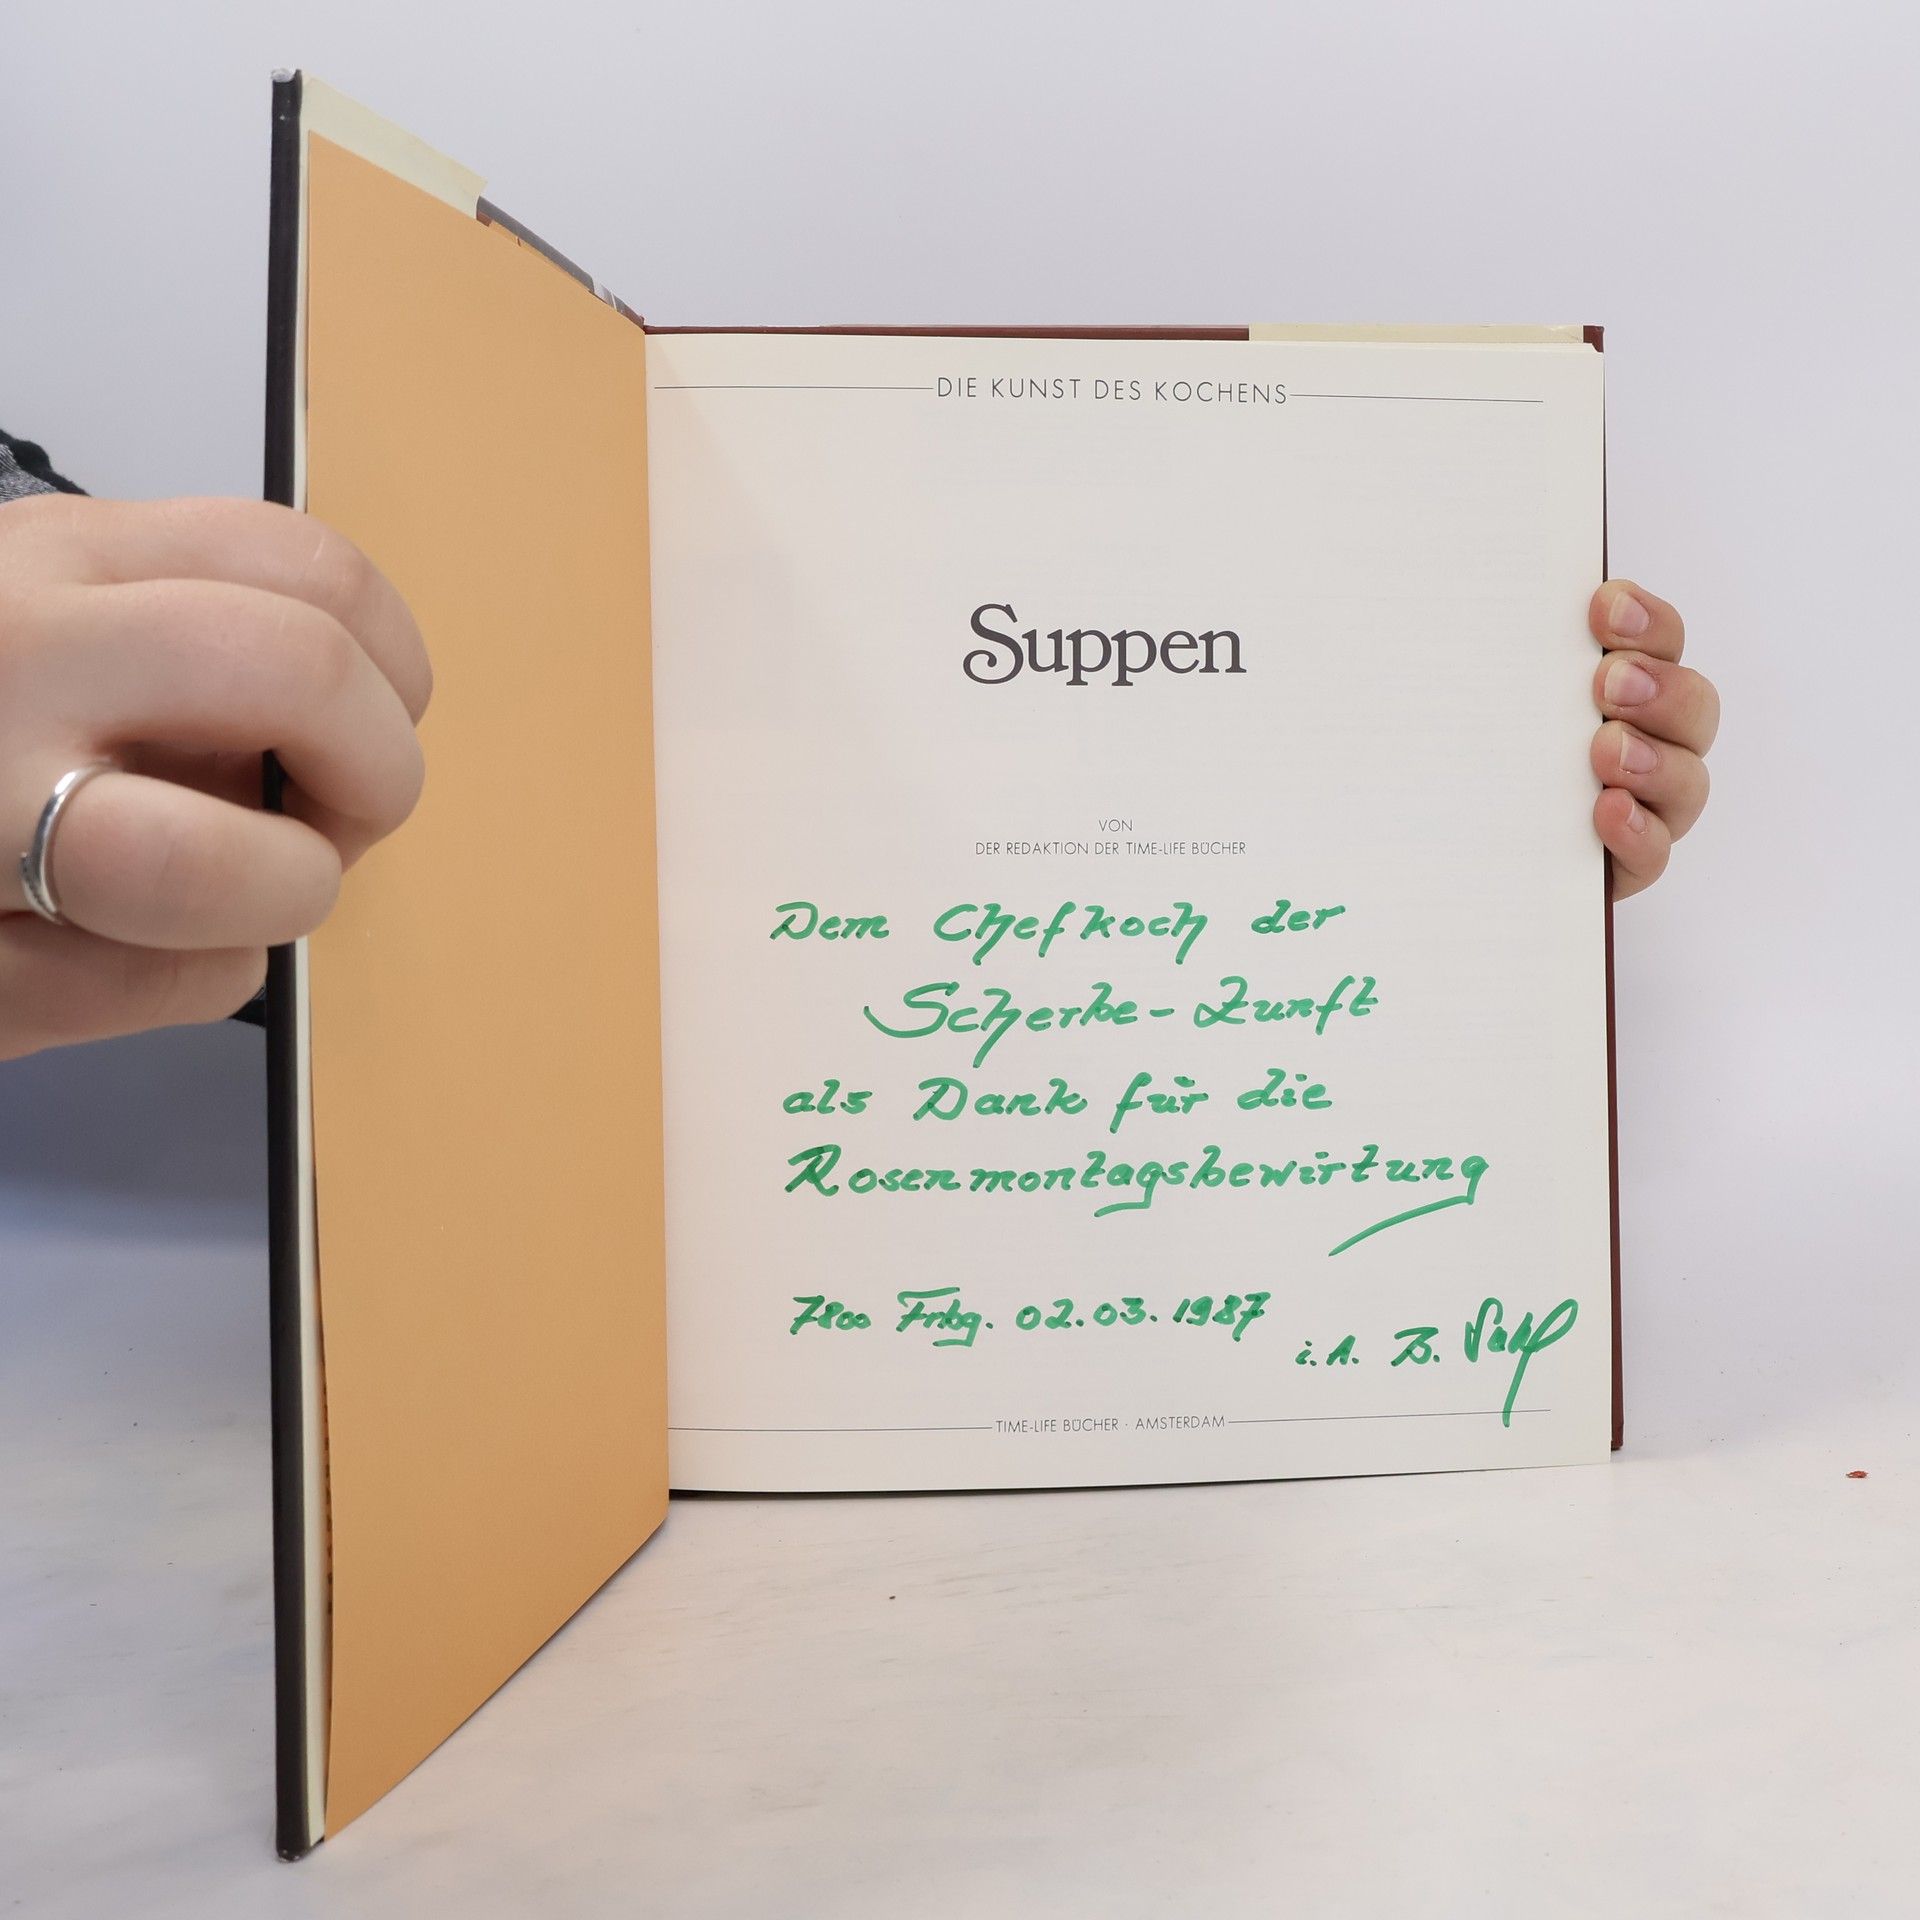 DIE KUNST DES KOCHENS
Suppen
VON
DER REDAKTION DER TIME-LIFE BÜCHER
Dem Chefkoch der
Scherbe-Zunft
als Dank für die
Rosenmontagsbewirtung
7800 Frbg. 02.03.1987
i.A. B.
TIME-LIFE BÜCHER · AMSTERDAM